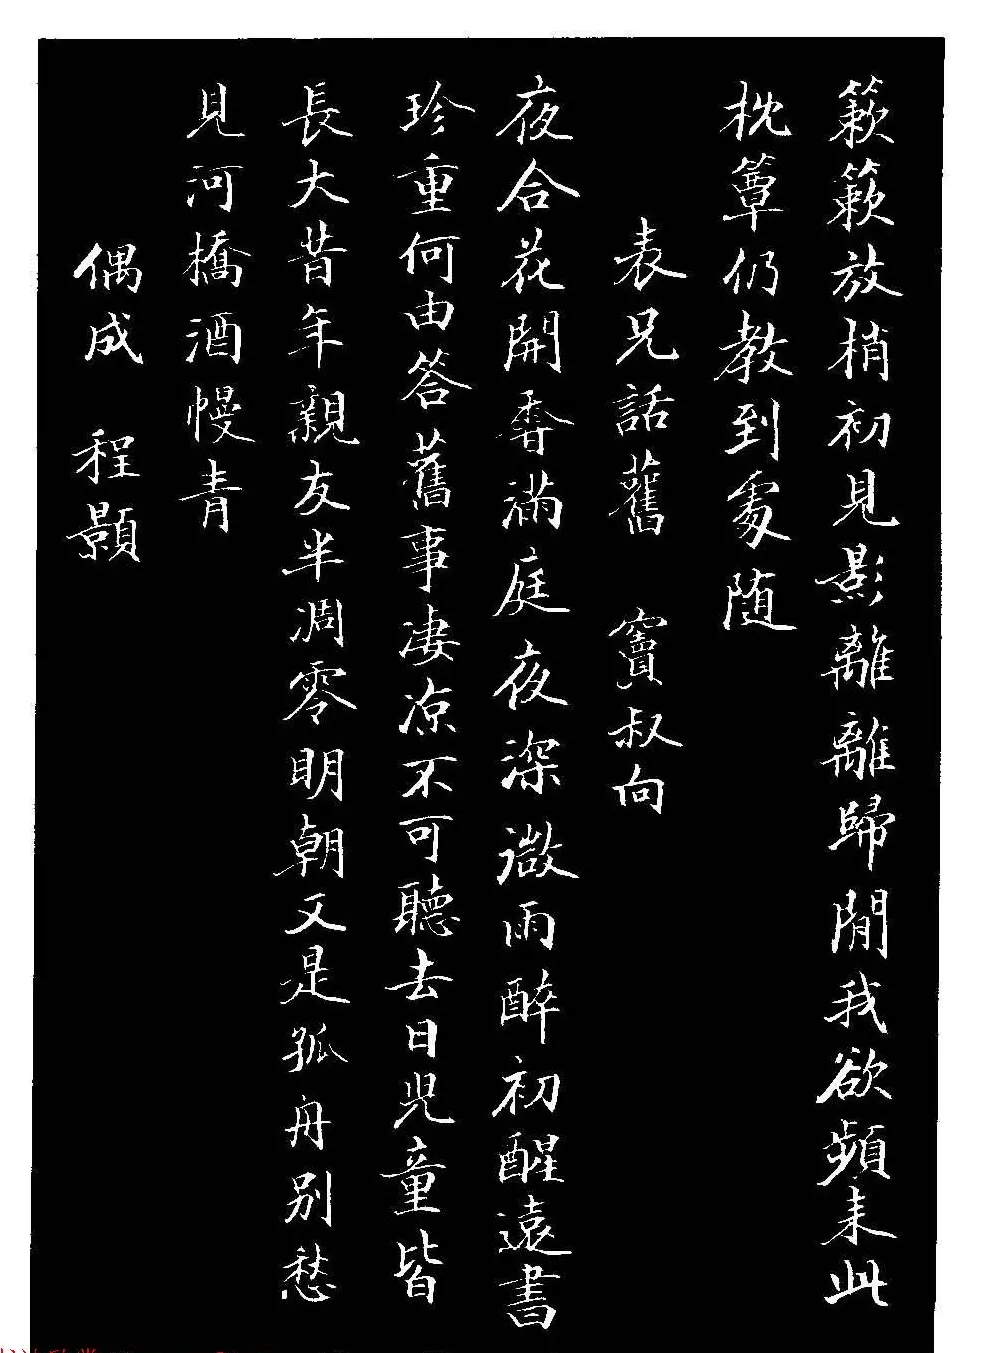 簌簌放梢初見影離離歸閒我欲頻來此
枕簟仍教到處随
表兄話舊 竇叔向
夜合花開香滿庭夜深微雨醉初醒遠書
珍重何由答舊事凄凉不可聽去日兒童皆
長大昔年親友半凋零明朝又是孤舟别愁
見河橋酒幔青
偶成 程顥